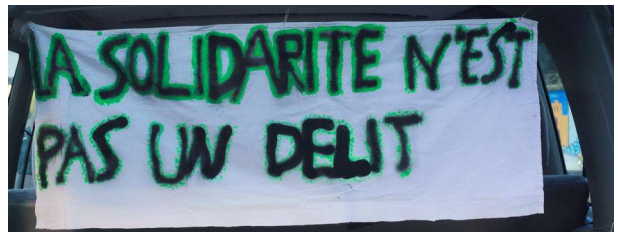 LA SOLIDARITE N'EST
PAS UN DELIT